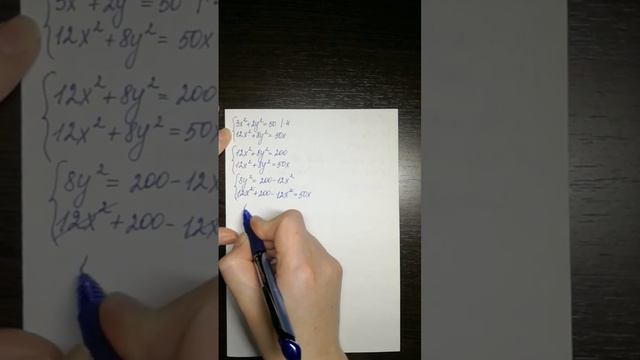 3x² + 2y² = 50 | ·4
12x² + 8y² = 50x
12x² + 8y² = 200
12x² + 8y² = 50x
8y² = 200 - 12x²
12x² + 200 - 12x² = 50x